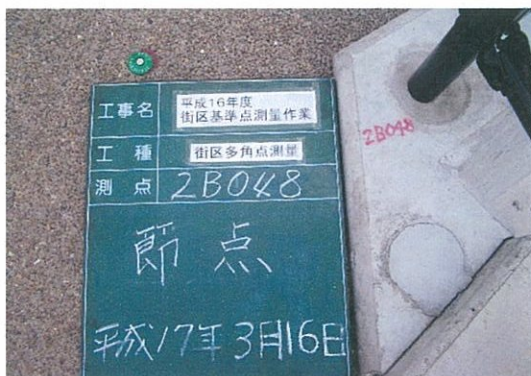 工事名
平成16年度
街区基準点測量作業
工種
街区多角点測量
測点
2B048
節点
平成17年3月16日
2B048